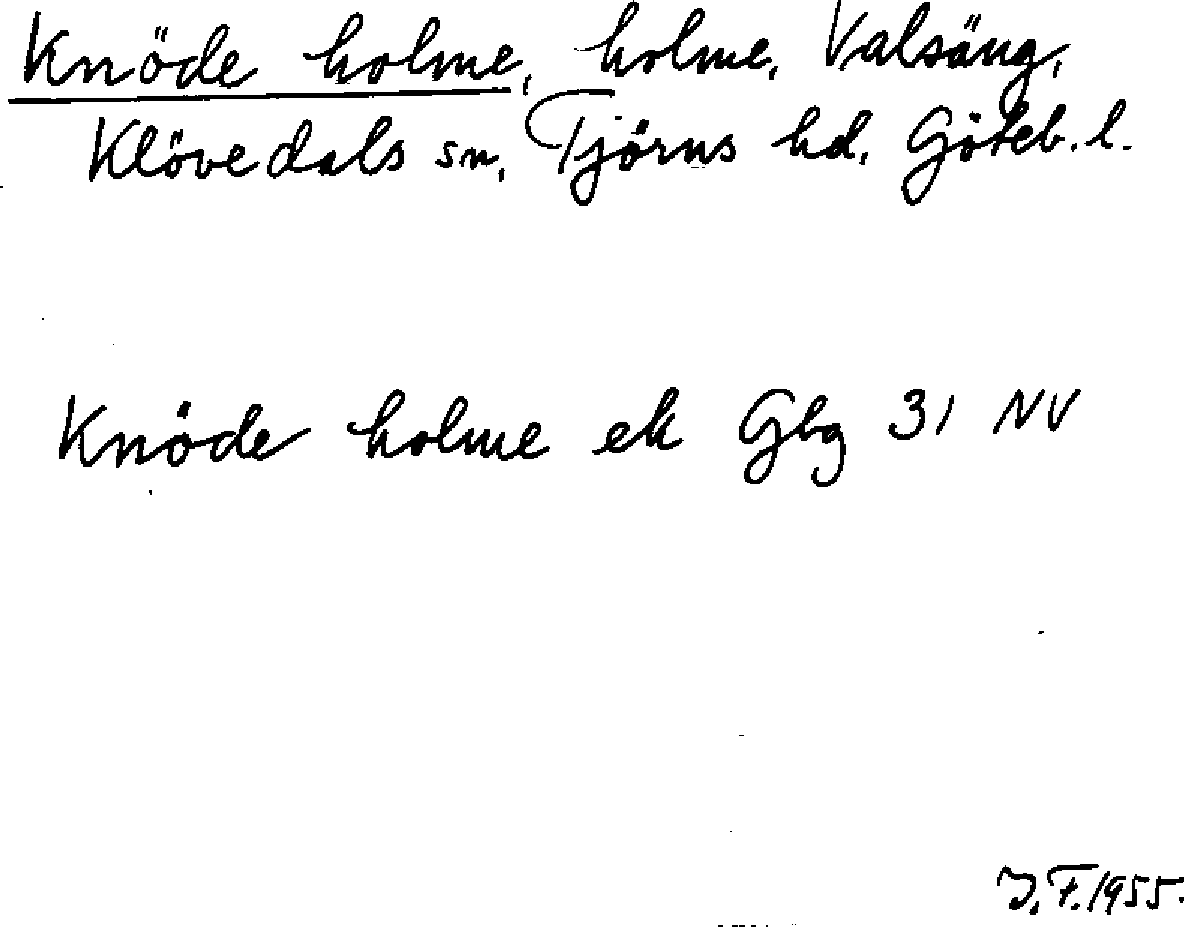 Knöde holme, holme, Valsäng,
Klövedals sn, Tjörns hd, Göteb. l.
Knöde holme ek Gbg 31 NV
J.F. 1955.